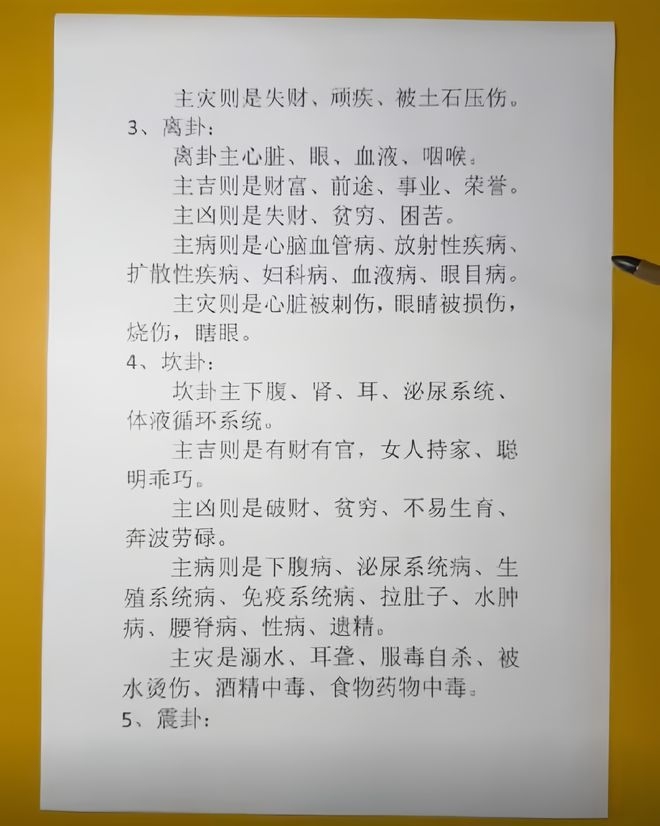 主灾则是失财、顽疾、被土石压伤。
3、离卦：
离卦主心脏、眼、血液、咽喉。
主吉则是财富、前途、事业、荣誉。
主凶则是失财、贫穷、困苦。
主病则是心脑血管病、放射性疾病、
扩散性疾病、妇科病、血液病、眼目病。
主灾则是心脏被刺伤，眼睛被损伤，
烧伤，瞎眼。
4、坎卦：
坎卦主下腹、肾、耳、泌尿系统、
体液循环系统。
主吉则是有财有官，女人持家、聪
明乖巧。
主凶则是破财、贫穷、不易生育、
奔波劳碌。
主病则是下腹病、泌尿系统病、生
殖系统病、免疫系统病、拉肚子、水肿
病、腰脊病、性病、遗精。
主灾是溺水、耳聋、服毒自杀、被
水烫伤、酒精中毒、食物药物中毒。
5、震卦：